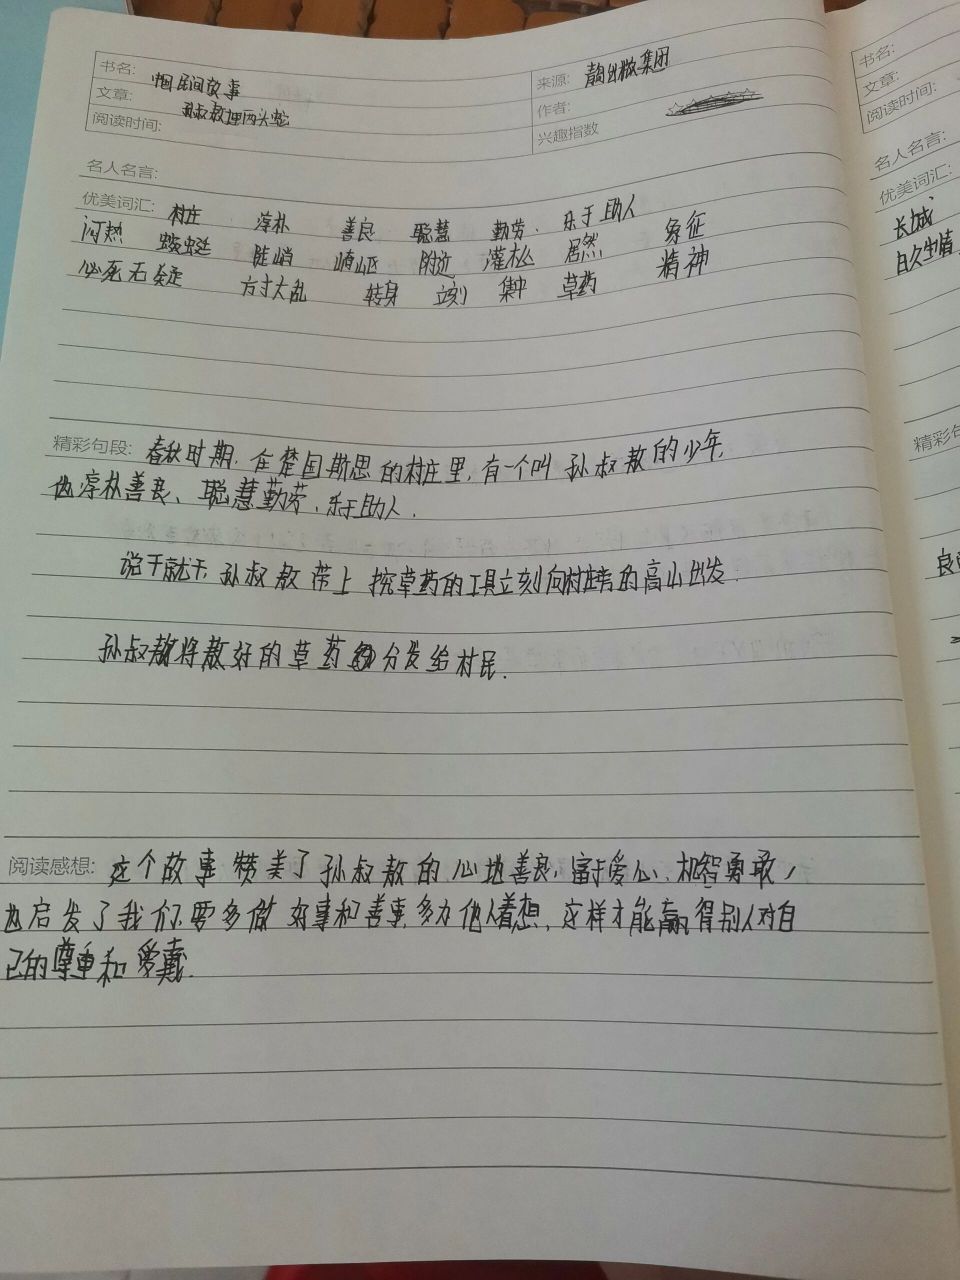 书名: 中国民间故事
来源: 青岛出版集团
文章: 孙叔敖埋两头蛇
作者:
阅读时间:
兴趣指数
名人名言:
优美词汇: 村庄 淳朴 善良 聪慧 勤劳、乐于助人
闷热 蜿蜒 陡峭 崎岖 附近 灌木丛 居然 象征
必死无疑 方寸大乱 转身 立刻 集中 草药 精神
精彩句段: 春秋时期,在楚国斯思的村庄里,有一个叫孙叔敖的少年,
他淳朴善良、聪慧勤劳、乐于助人.
说干就干,孙叔敖带上挖草药的工具立刻向村庄旁的高山出发.
孙叔敖将熬好的草药分发给村民.
阅读感想: 这个故事赞美了孙叔敖的心地善良,富于爱心、机智勇敢,
也启发了我们要多做好事和善事,多为他人着想,这样才能赢得别人对自
己的尊重和爱戴.
书名:
文章:
阅读时间:
名人名言:
优美词汇:
长城
精彩句